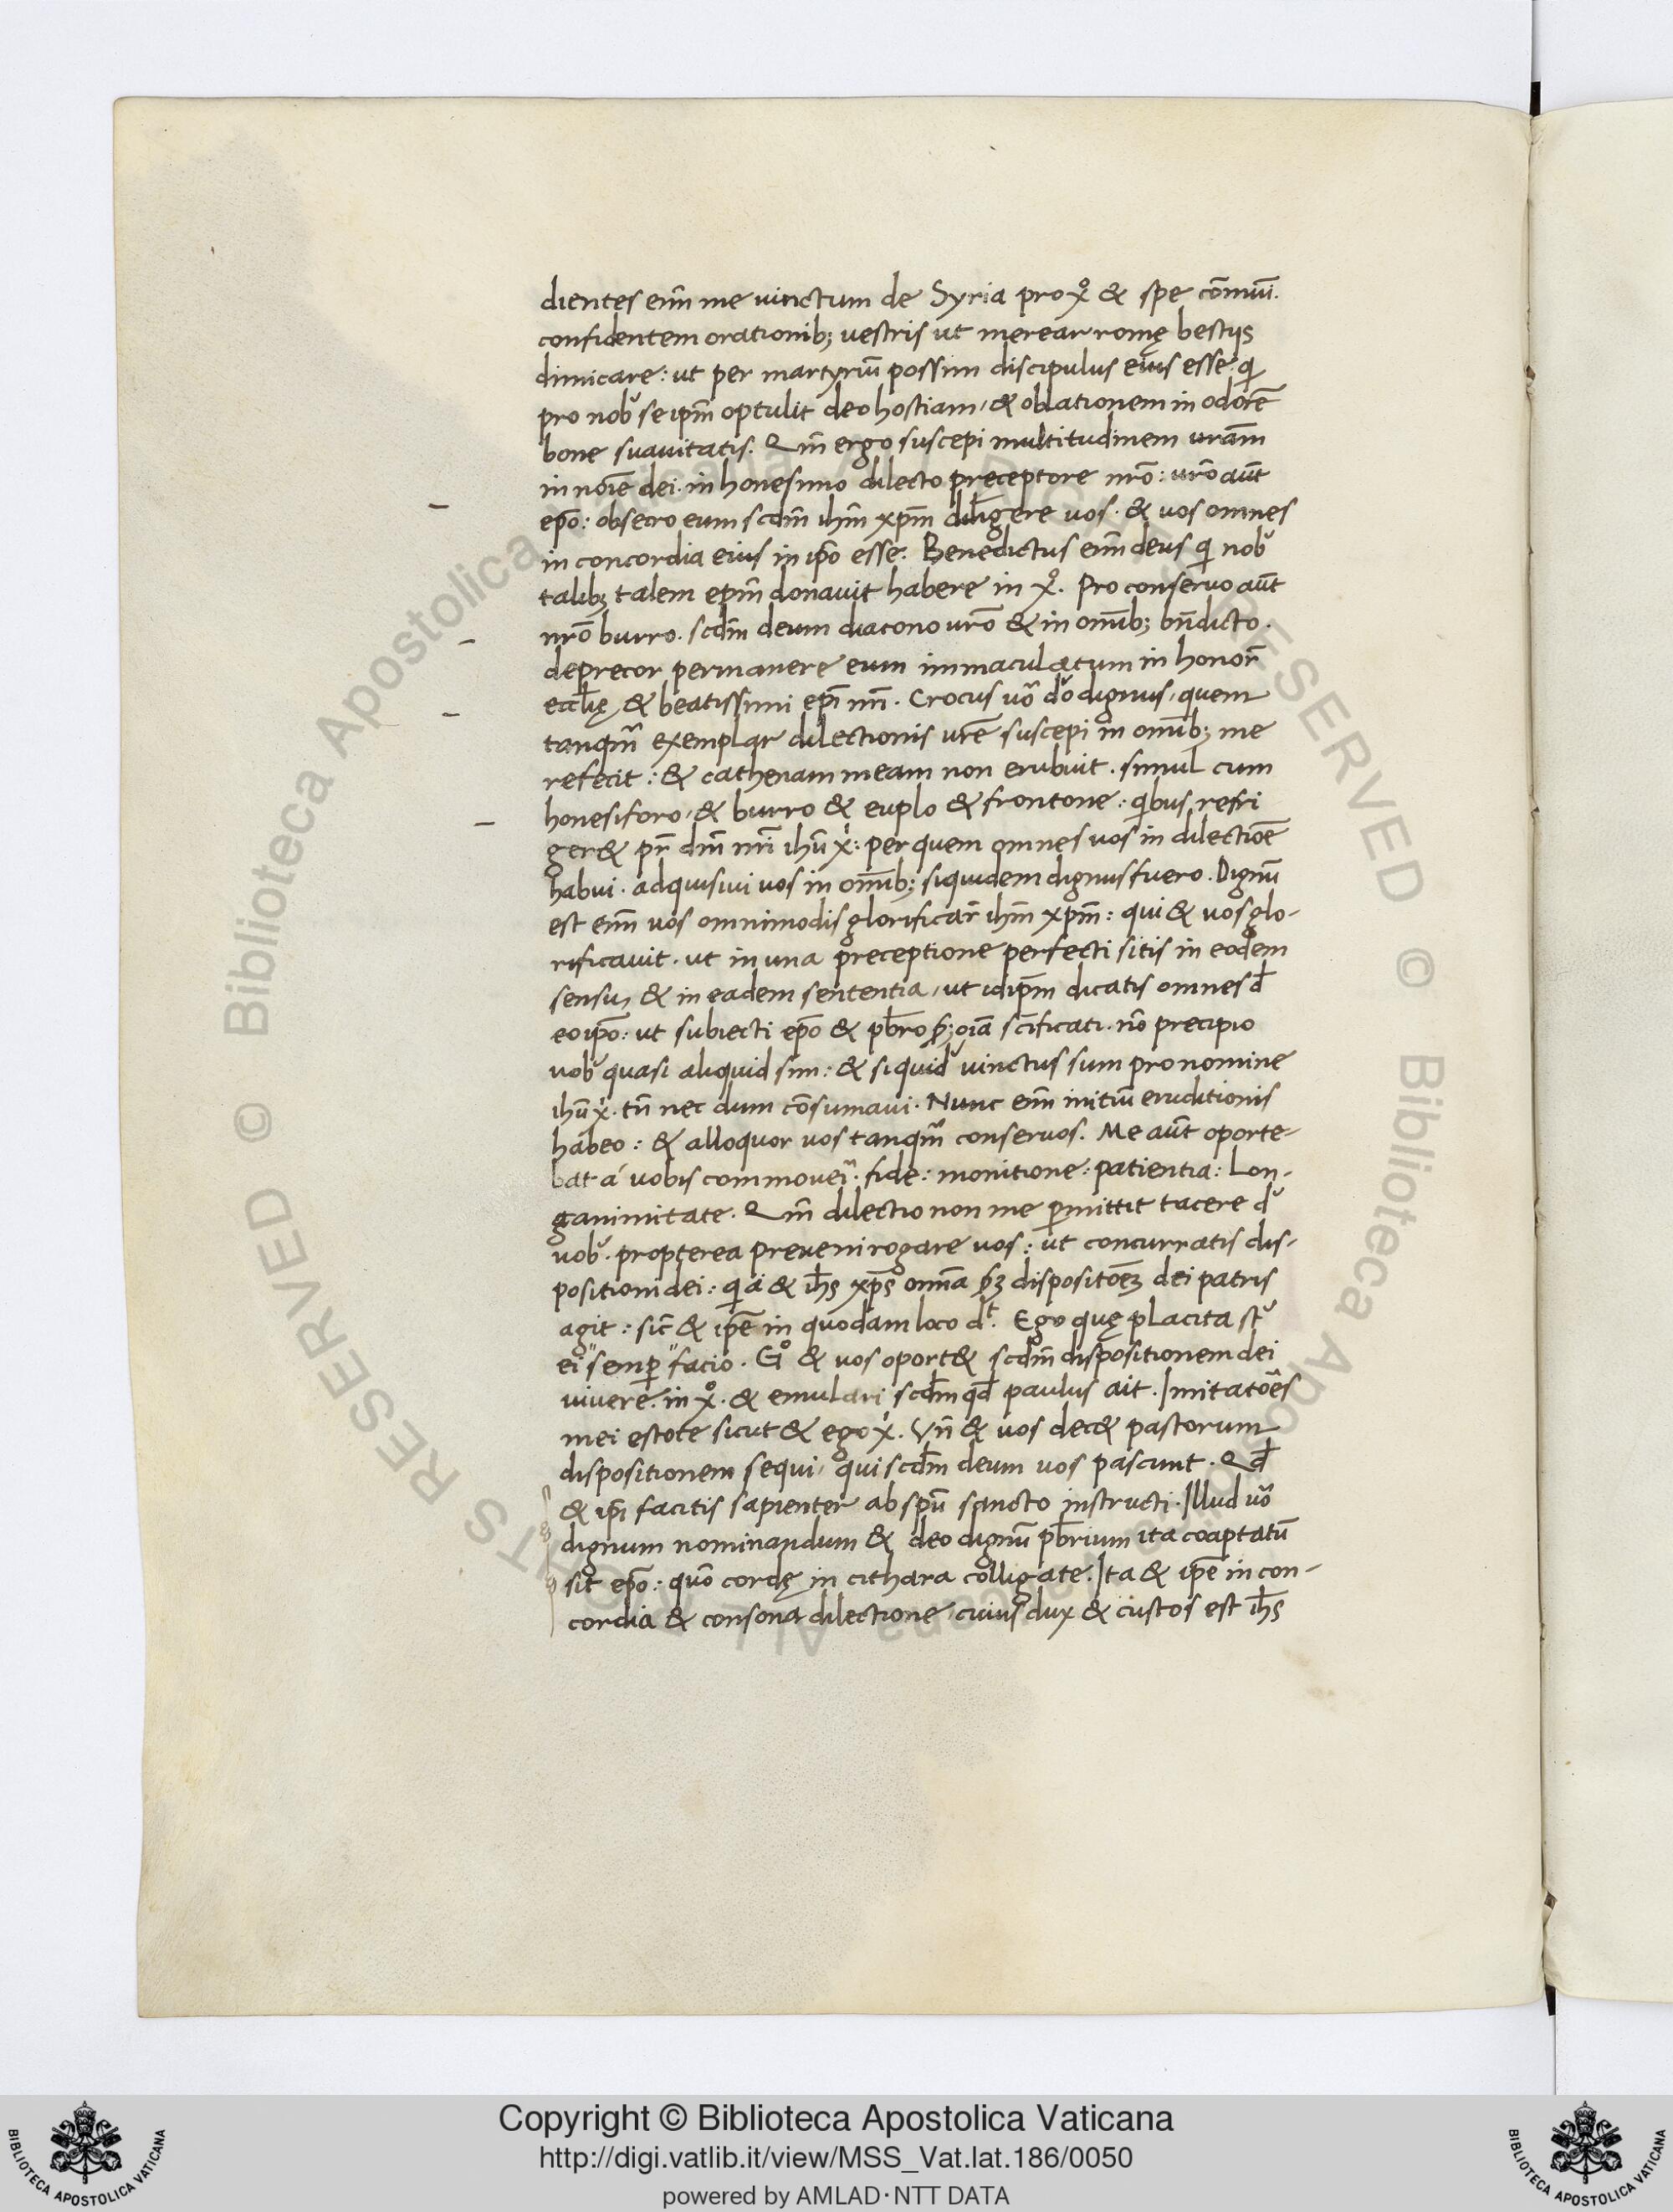 dientes eni̅m me uinctum de Syria pro x̊ & spe co̅mu̅i.
confidentem orationib; uestris ut merear romę bestijs
dimicare: ut per martyriu̅ possim discipulus eius esse: qi
pro nob᷒ se ip̅m optulit deo hostiam, & oblationem in odore̅
bone suauitatis. Qm̅ ergo suscepi multitudinem ura̅m
in no̅ie dei. in honesimo dilecto preceptore nr̅o: ur̅o au̅t
ep̅o: obsecro eum scd̅m ihm̅ xpm̅ diligere uos. & uos omnes
in concordia eius in ip̅o esse. Benedictus eni̅m deus qi nob᷒
talib; talem epm̅ donauit habere in x̊. Pro conseruo au̅t
nr̅o burro. scd̅m deum diacono ur̅o & in omi̅b; bn̅dicto.
deprecor permanere eum immaculatum in honor̅
eccl̅ię & beatissimi ep̅i nr̅i. Crocus uo̅ do̅ dignus, quem
tanqm̅ exemplar dilectionis ur̅e suscepi in omi̅b; me
refecit: & cathenam meam non erubuit. simul cum
honesiforo, & burro & euplo & frontone: qibus refri
ger& pr̅ dni̅ nr̅i ihu̅ x̊: per quem omnes uos in dilectio̅e
habui. adquisiui uos in omi̅b; siquidem dignus fuero. Dignu̅
est eni̅m uos omnimodis glorificar̅ ihm̅ xpm̅: qui & uos glo-
rificauit. ut in una preceptione perfecti sitis in eodem
sensu, & in eadem sententia, ut idip̅m dicatis omnes d̅
eo ip̅o: ut subiecti ep̅o & pb̅ro p; oi̅a sc̅ificati. no̅ precipio
uob᷒ quasi aliquid sim: & si quid᷒ uinctus sum pro nomine
ihu̅ x̊. tn̅ nec dum co̅sumaui. Nunc eni̅m initiu̅ eruditionis
habeo: & alloquor uos tanqm̅ conseruos. Me au̅t oporte-
bat á uobis commoueri̅. fide: monitione: patientia: Lon-
ganimitate. Qm̅ dilectio non me p̱mittit tacere d᷒
uob᷒. propterea preueni rogare uos: ut concurratis dis-
positioni dei: qi á & ihs̅ xps̅ omi̅a p; dispositoe̅; dei patris
agit: sic̅ & ip̅e in quodam loco dt. Ego quę placita st᷒
ei "semp̱" facio. Go & uos oport& scd̅m dispositionem dei
uiuere. in x̊. & emulari scd̅m qd̅ paulus ait. Imitato̅es
mei estote sicut & ego x̊. Vn̅ & uos dec& pastorum
dispositionem sequi, qui scd̅m deum uos pascunt. Qd̅
& ip̅i facitis sapienter ab spu̅ sancto instructi. Illud uo̅
dignum nominandum & deo dignu̅ pb̅rium ita coaptatu̅
sit ep̅o: quo̅ cordę in cithara colligate. Ita & ip̅e in con-
cordia & consona dilectione, cuius dux & custos est ihs̅
Copyright © Biblioteca Apostolica Vaticana
http://digi.vatlib.it/view/MSS_Vat.lat.186/0050
powered by AMLAD·NTT DATA
BIBLIOTECA APOSTOLICA VATICANA
BIBLIOTECA APOSTOLICA VATICANA